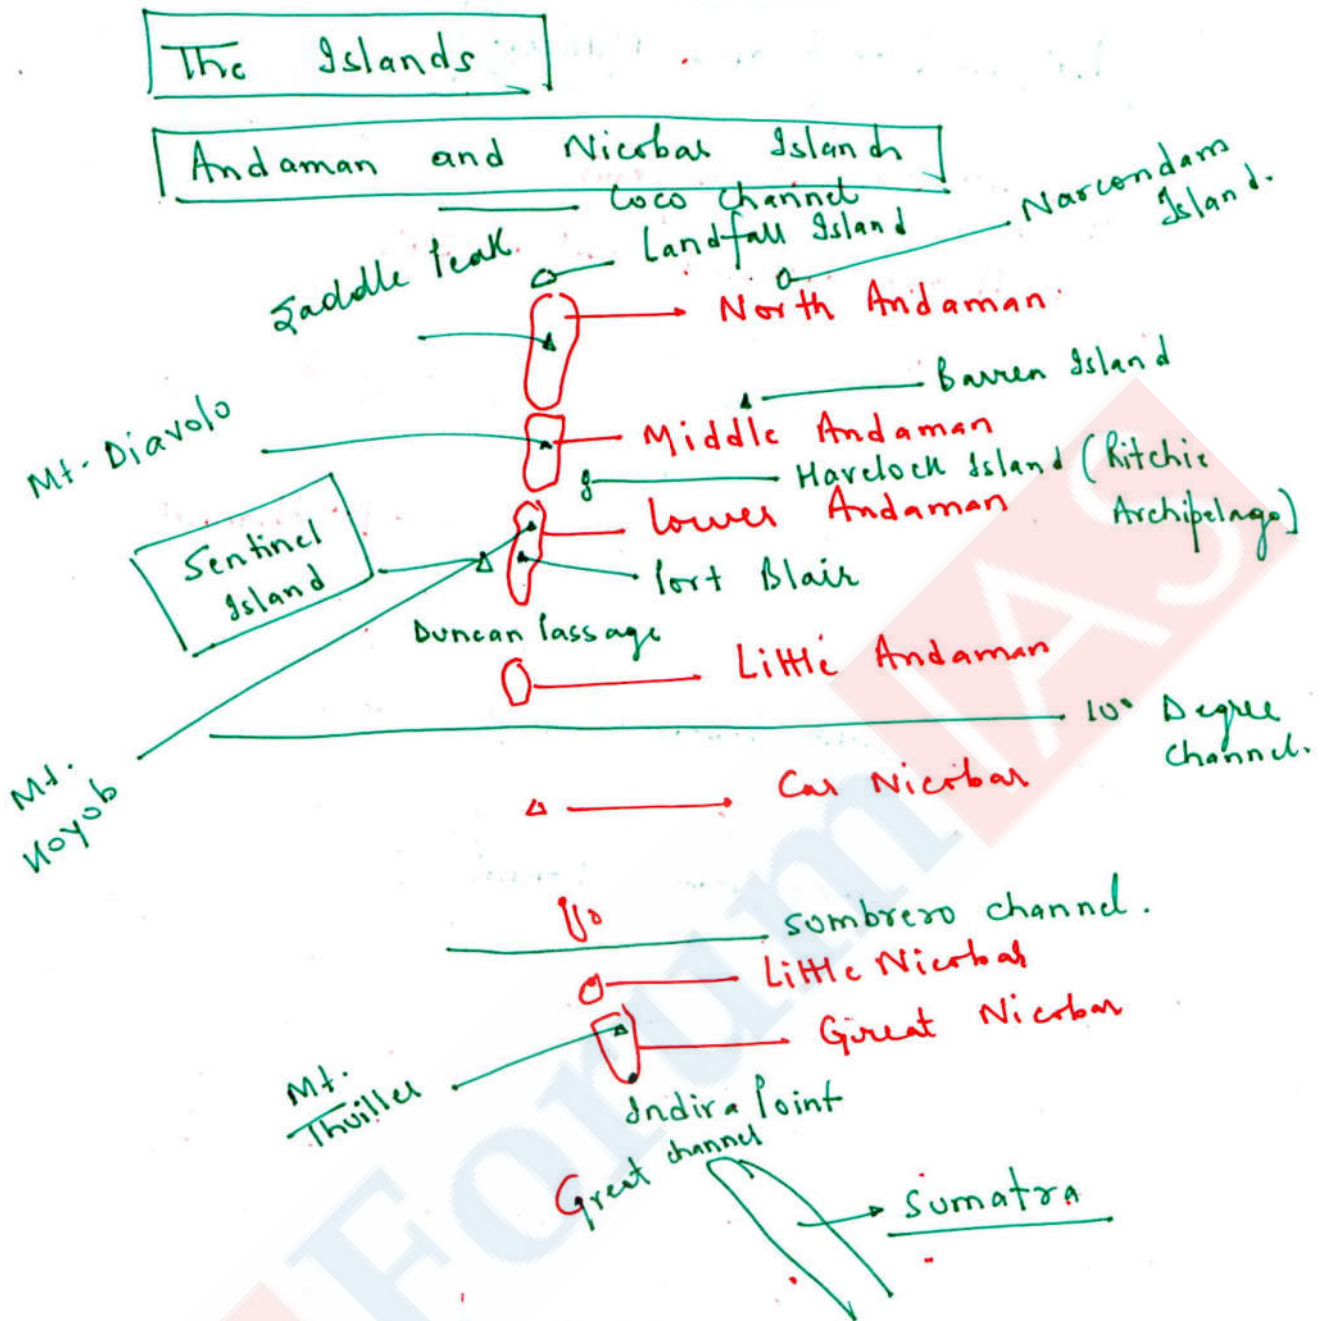 The Islands
Andaman and Nicobar Islands
Coco channel
Landfall Island
Narcondam
Island.
Saddle Peak
North Andaman
Barren Island
Mt. Diavolo
Middle Andaman
Havelock Island (Ritchie
Archipelago)
Lower Andaman
Sentinel
Island
Port Blair
Duncan Passage
Little Andaman
10° Degree
channel.
Mt.
Koyob
Car Nicobar
sombrero channel.
Little Nicobar
Great Nicobar
Mt.
Thuiller
Indira Point
Great channel
Sumatra
Forum IAS